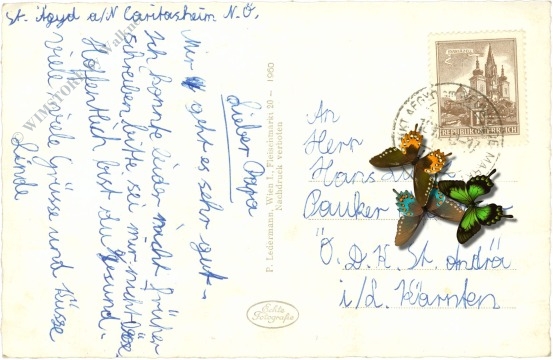 St. Ägyd a/N Caritasheim N.Ö.
Lieber Papa
Mir geht es sehr gut.
Ich konnte leider nicht früher
schreiben, bitte sei mir nicht böse.
Hoffentlich bist du gesund.
Viele viele Grüsse und Küsse
Linde
P. Ledermann, Wien I., Fleischmarkt 20 – 1960
Nachdruck verboten
Echte
Fotografie
REPUBLIK ÖSTERREICH
An
Herrn
Hans
Pauker
Ö. D. K. St. Andrä
i/L. Kärnten
© WIMSTORE